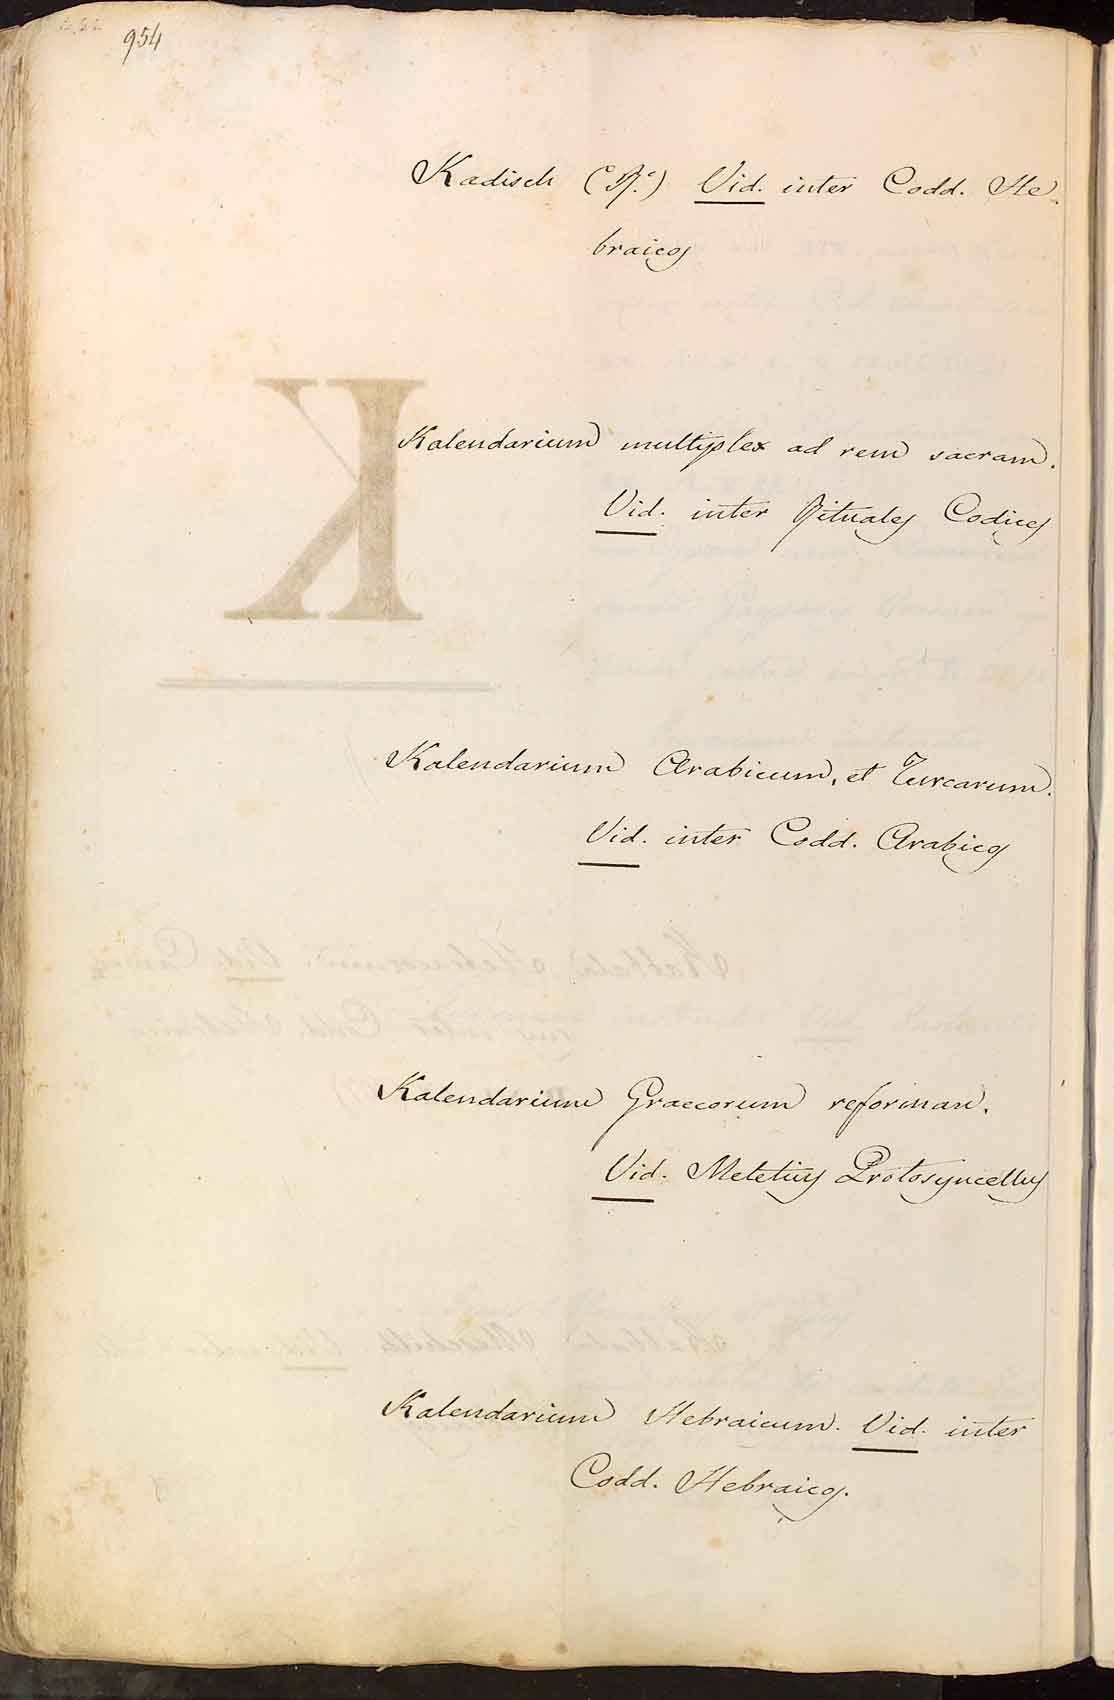 954
Kadisch (R.) Vid. inter Codd. He-
braicos
Kalendarium multiplex ad rem sacram.
Vid. inter Rituales Codices
Kalendarium Arabicum, et Turcarum.
Vid. inter Codd. Arabicos
Kalendarium Graecorum reforman.
Vid. Meletius Protosyncellus
Kalendarium Hebraicum. Vid. inter
Codd. Hebraicos.